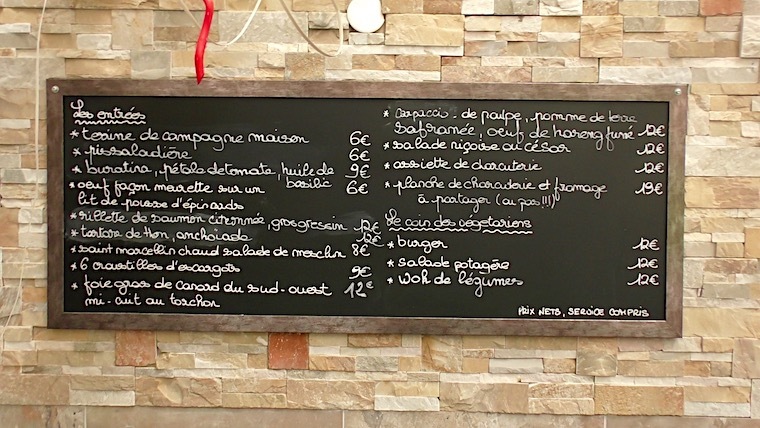 Les entrées
* terrine de campagne maison 6€
* pissaladière 6€
* buratina, pétale de tomate, huile de basilic 9€
* oeuf façon meurette sur un 6€
lit de pousse d'épinards
* rillette de saumon citronnée, gros gressin 12€
* tartare de thon, anchoiade 12€
* saint marcellin chaud salade de mesclun 8€
* 6 croustilles d'escargots 9€
* foie gras de canard du sud-ouest 12€
mi-cuit au torchon
* carpaccio de poulpe, pomme de terre
safranée, oeuf de hareng fumé 12€
* salade niçoise ou césar 12€
* assiette de charcuterie 12€
* planche de charcuterie et fromage 19€
à partager (ou pas!!!)
Le coin des végétariens
* burger 12€
* salade potagère 12€
* wok de légumes 12€
PRIX NETS, SERVICE COMPRIS